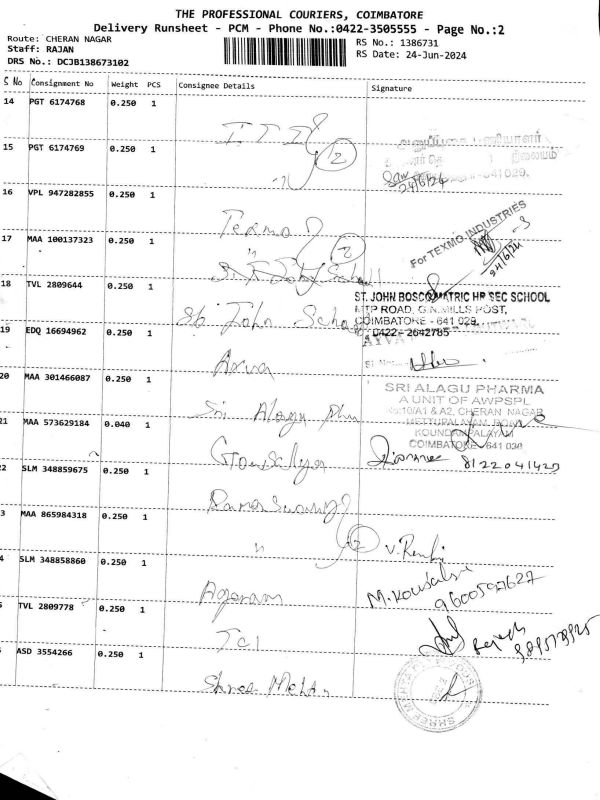 THE PROFESSIONAL COURIERS, COIMBATORE
Delivery Runsheet - PCM - Phone No.:0422-3505555 - Page No.:2
Route: CHERAN NAGAR
Staff: RAJAN
DRS No.: DCJB138673102
RS No.: 1386731
RS Date: 24-Jun-2024
S No Consignment No Weight PCS Consignee Details Signature
14 PGT 6174768 0.250 1
I T I
15 PGT 6174769 0.250 1
2
24/6/24
641 029.
16 VPL 947282855 0.250 1
Texmo
For TEXMO INDUSTRIES
24/6/24
17 MAA 100137323 0.250 1
2
18 TVL 2809644 0.250 1
St John School
ST. JOHN BOSCO MATRIC HR SEC SCHOOL
MTP ROAD, G.N.MILLS POST,
COIMBATORE - 641 029.
0422 - 2642785
19 EDQ 16694962 0.250 1
20 MAA 301466087 0.250 1
Sri Alagu
SRI ALAGU PHARMA
A UNIT OF AWPSPL
No:10/A1 & A2, CHERAN NAGAR
METTUPALAYAM ROAD
KOUNDANPALAYAM
COIMBATORE - 641 030
21 MAA 573629184 0.040 1
Gousalya
2 SLM 348859675 0.250 1
Ramaswamy
3 MAA 865984318 0.250 1
2
4 SLM 348858860 0.250 1
Agaram
M. Kousalya
5 TVL 2809778 0.250 1
TCI
ASD 3554266 0.250 1
Shree Mehta